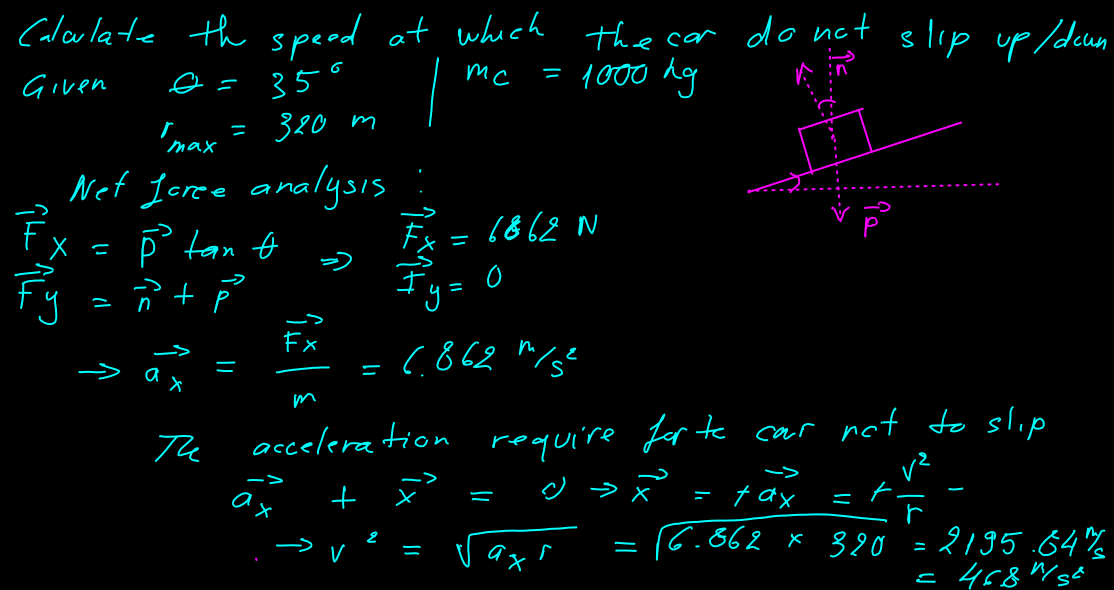 Calculate th speed at which the car do not slip up/down
Given θ = 35° | mc = 1000 kg
rmax = 320 m
n⃗
p⃗
Net force analysis :
F⃗x = p⃗ tan θ ⇒ F⃗x = 6862 N
F⃗y = n⃗ + p⃗ F⃗y = 0
→ a⃗x = F⃗x / m = 6.862 m/s²
The acceleration require for te car not to slip
a⃗x + x⃗ = 0 → x⃗ = + a⃗x = + v²/r -
→ v² = √(ax r) = √(6.862 x 320) = 2195.84 m/s
= 468 m/s²